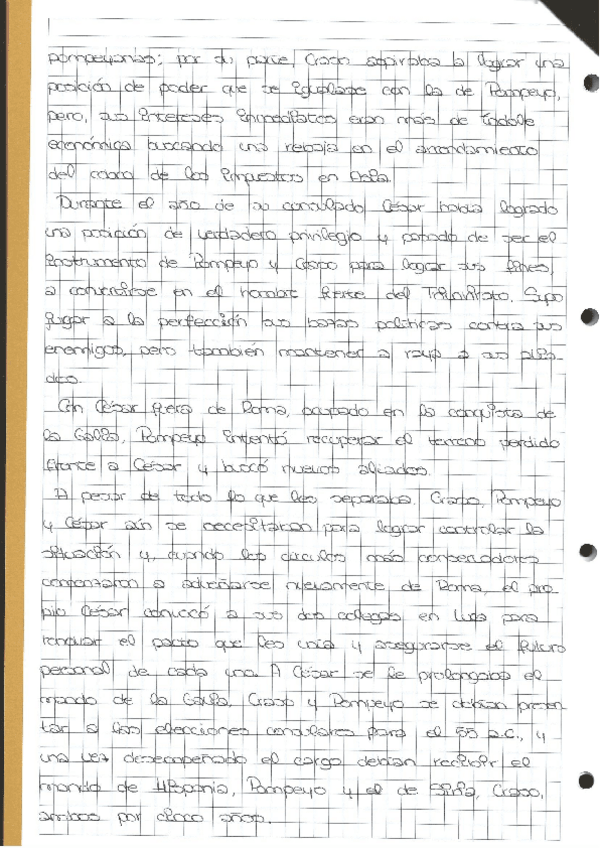 pompeyanas; por su parte, Craso aspiraba a lograr una
posición de poder que se igualase con la de Pompeyo,
pero, sus intereses inmediatos eran más de índole
económica buscando una rebaja en el arrendamiento
del cobro de los impuestos en Asia.
Durante el año de su consulado César había logrado
una posición de verdadero privilegio y pasado de ser el
instrumento de Pompeyo y Craso para lograr sus fines,
a convertirse en el hombre fuerte del Triunvirato. Supo
jugar a la perfección sus bazas políticas contra sus
enemigos, pero también mantener a raya a sus alia-
dos.
Con César fuera de Roma, ocupado en la conquista de
la Galia, Pompeyo intentó recuperar el terreno perdido
frente a César y buscó nuevos aliados.
A pesar de todo lo que les separaba, Craso, Pompeyo
y César aún se necesitaban para lograr controlar la
situación y, cuando los círculos más conservadores
comenzaron a adueñarse nuevamente de Roma, el pro-
pio César convocó a sus dos colegas en Luca para
renovar el pacto que les unía y asegurarse el futuro
personal de cada uno. A César se le prolongaba el
mando de la Galia, Craso y Pompeyo se debían presen-
tar a las elecciones consulares para el 55 a.C., y
una vez desempeñado el cargo debían recibir el
mando de Hispania, Pompeyo y el de Siria, Craso,
ambos por cinco años.